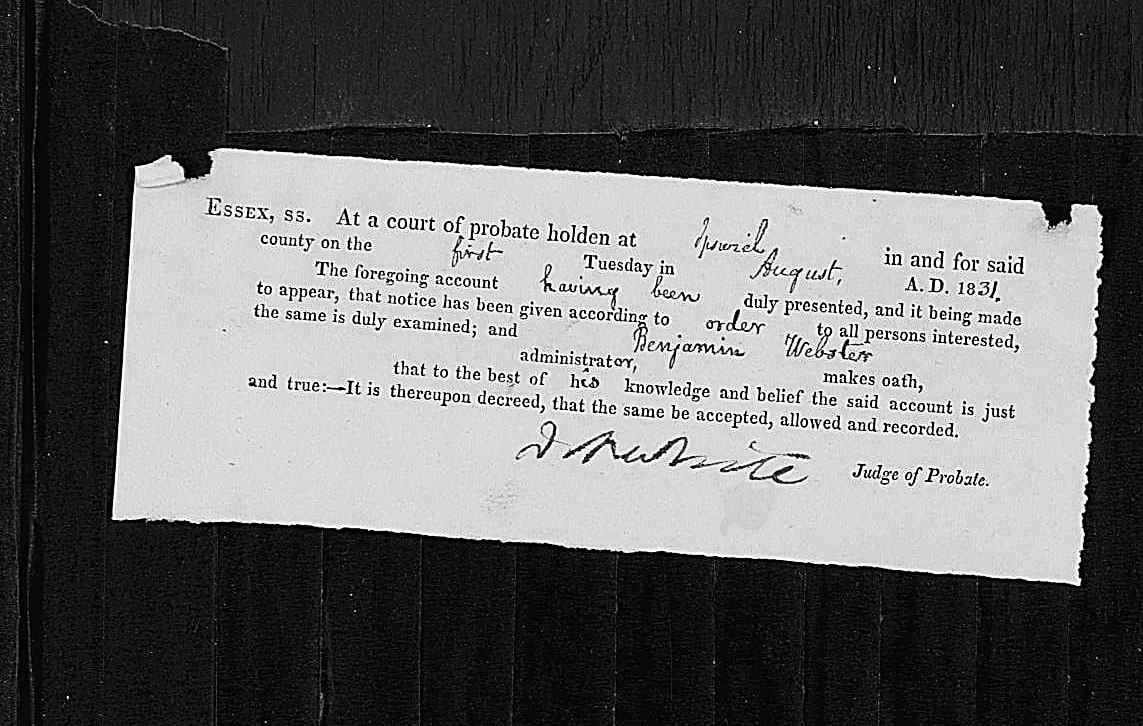 ESSEX, SS. At a court of probate holden at Ipswich in and for said
county on the first Tuesday in August, A. D. 1831.
The foregoing account having been duly presented, and it being made
to appear, that notice has been given according to order to all persons interested,
the same is duly examined; and Benjamin Webster
administrator, makes oath,
that to the best of his knowledge and belief the said account is just
and true:—It is thereupon decreed, that the same be accepted, allowed and recorded.
Judge of Probate.